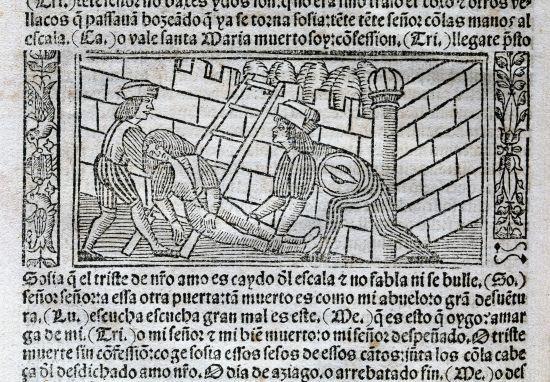 Tri.) tẽte señor no bajes ydos son: quo era sino traso el coxo ⁊ otros ve
llacos q̃ passauã bozeãdo q̃ ya se torna sosia: tẽte tẽte señor cõlas manos al
escala. (Ca.) o vale santa Maria muerto soy: cõfession. (Tri.) llegate p̃sto
Sosia q̃ el triste de nr̃o amo es caydo ďl escala ⁊ no fabla ni se bulle. (So.)
señor señor: a essa otra puerta: tã muerto es como mi abuelo: o grã desuẽtu
ra. (Lu.) escucha escucha gran mal es este. (Me.) q̃ es esto q̃ oygo: amar
ga de mi. (Tri.) o mi señor ⁊ mi biẽ muerto: o mi señor despeñado. O triste
muerte sin cõfessiõ: coge sosia essos sesos de essos cãtos: jũta los cõla cabe
ça ďl desdichado amo nr̃o. O dia de aziago: o arrebatado fin. (Me.) o des